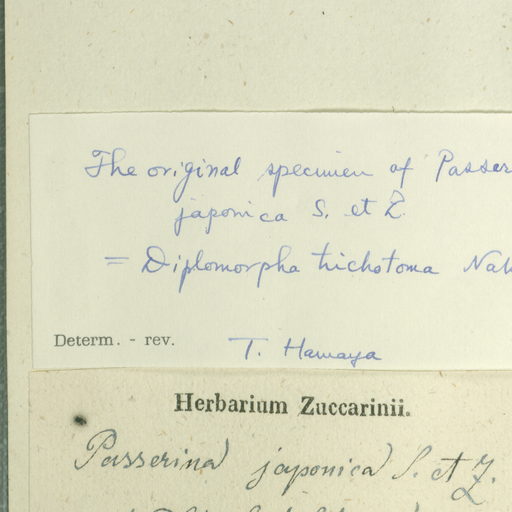 The original specimen of Passer
japonica S. et Z.
= Diplomorpha trichotoma Nak
Determ. - rev.
T. Hamaya
Herbarium Zuccarinii.
Passerina japonica S. et Z.